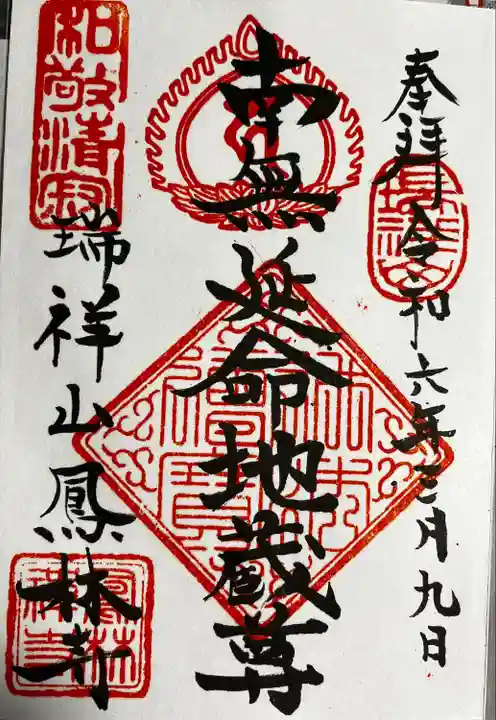 奉拝 令和六年三月九日
南無延命地蔵尊
和敬清寂
瑞祥山鳳林寺